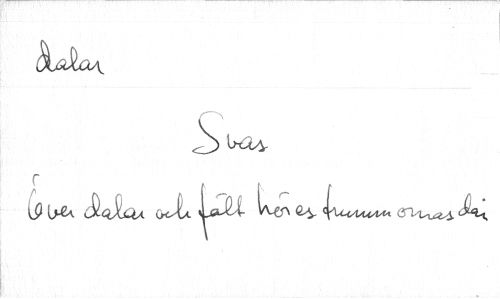 dalar
Svas
Över dalar och fält höres trummornas dån